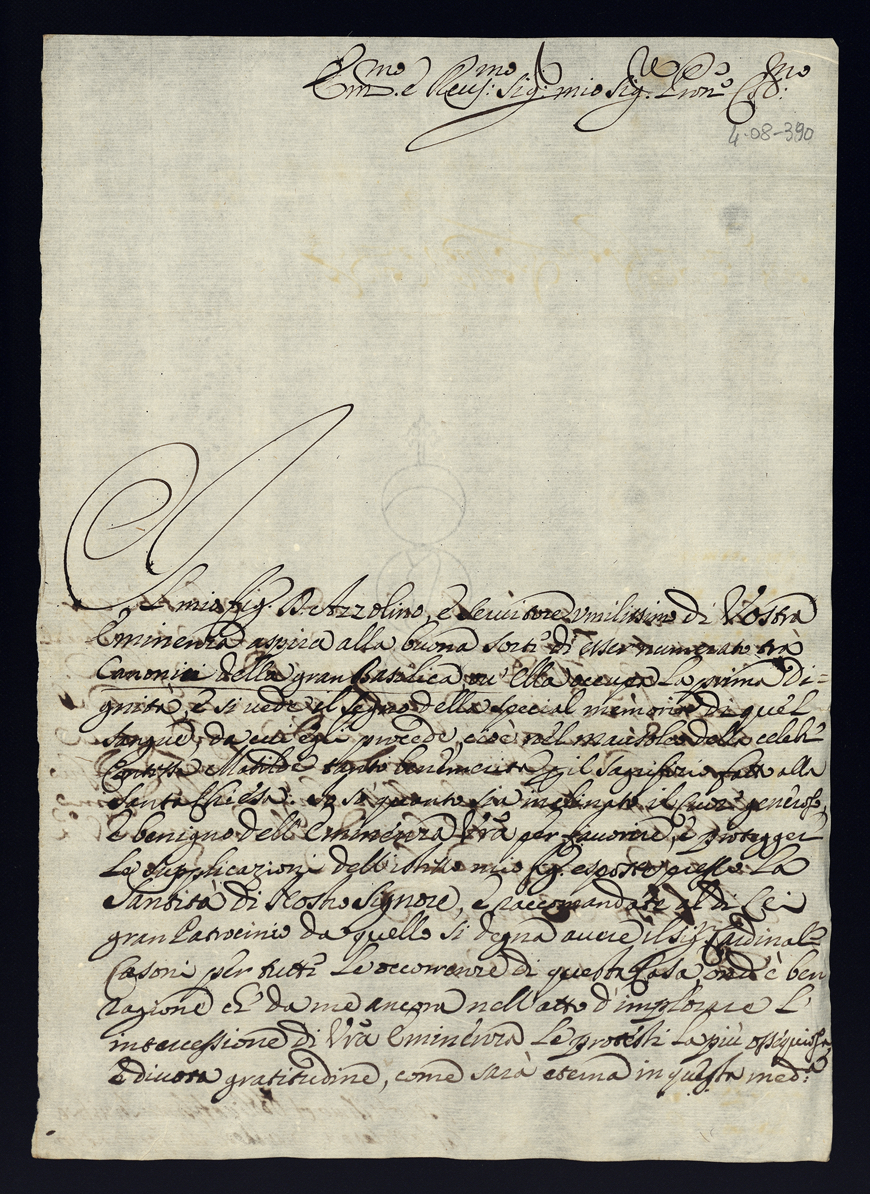 Em.mo e Reu.mo Sig.r mio Sig.r e Pron.e Col.mo
4-08-390
Il mio fig.o D. Azzolino, e servitore vmilissimo di Vostra
Eminenza aspira alla buona sorte di esser numerato trà
Canonici della gran Basilica ou' Ella occupa la prima Di=
gnità, e si vede il segno della special memoria di quel
sangue, da cui egli procede, cioè nel mausoleo della celebre
Contessa Matilde tanto benemerita il sagrificio fatto alla
Santa Chiesa: io sò quanto sia inclinato il cuore generoso,
e benigno dell' Eminenza Vrã per favorire, e protegger
le supplicazioni dell' istesso mio fig.o esposte presso La
Santità di Nostro Signore, e raccomandate al di Lei
gran Patrocinio da quello si degna auere il Sig.r Cardinal
Casoni per tutte le occorrenze di questa Casa ond' è ben
ragione ch' da me ancora nell' atto d' implorare l'
intercessione di Vrã Eminenza Le protesti la più ossequiosa,
e diuota gratitudine, come sarà eterna in questa med.a